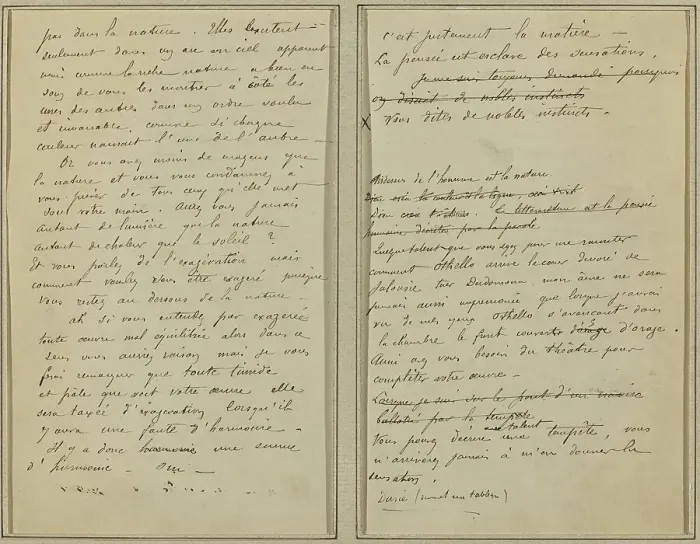 pas dans la nature. Elles existent
seulement dans un arc en ciel apparent
mais comme la riche nature a bien eu
soin de vous les montrer à côté les
unes des autres dans un ordre voulu
et invariable, comme si chaque
couleur naissait l'une de l'autre —
Or vous avez moins de moyens que
la nature et vous vous condamnez à
vous priver de tous ceux qu'elle met
sous votre main. Aurez vous jamais
autant de lumière que la nature
autant de chaleur que le soleil ?
Et vous parlez de l'exagération mais
comment voulez vous être exagéré puisque
vous restez au dessous de la nature
ah si vous entendez par exagéré
toute œuvre mal équilibrée alors dans ce
sens vous auriez raison mais je vous
ferai remarquer que toute timide
et pâle que soit votre œuvre elle
sera taxée d'exagération lorsqu'il
y aura une faute d'harmonie —
Il y a donc harmonie une science
d'harmonie — Oui —
c'est justement la matière —
La pensée est esclave des sensations.
Je me suis toujours demandé pourquoi
on disait de nobles instincts
X Vous dites de nobles instincts —
de l'homme est la nature.
La littérature est la pensée
humaine décrite par la parole
Quelque talent que vous ayez pour me raconter
comment Othello arrive le cœur dévoré de
jalousie tuer Desdemona mon âme ne sera
jamais aussi impressionée que lorsque j'aurai
vu de mes yeux Othello s'avançant dans
la chambre le front couvert d'orage.
Aussi avez vous besoin du théâtre pour
compléter votre œuvre —
Comme je suis sur le pont d'un navire
par la tempête
avec talent
Vous pouvez décrire une tempête, vous
n'arriverez jamais à m'en donner la
sensation.